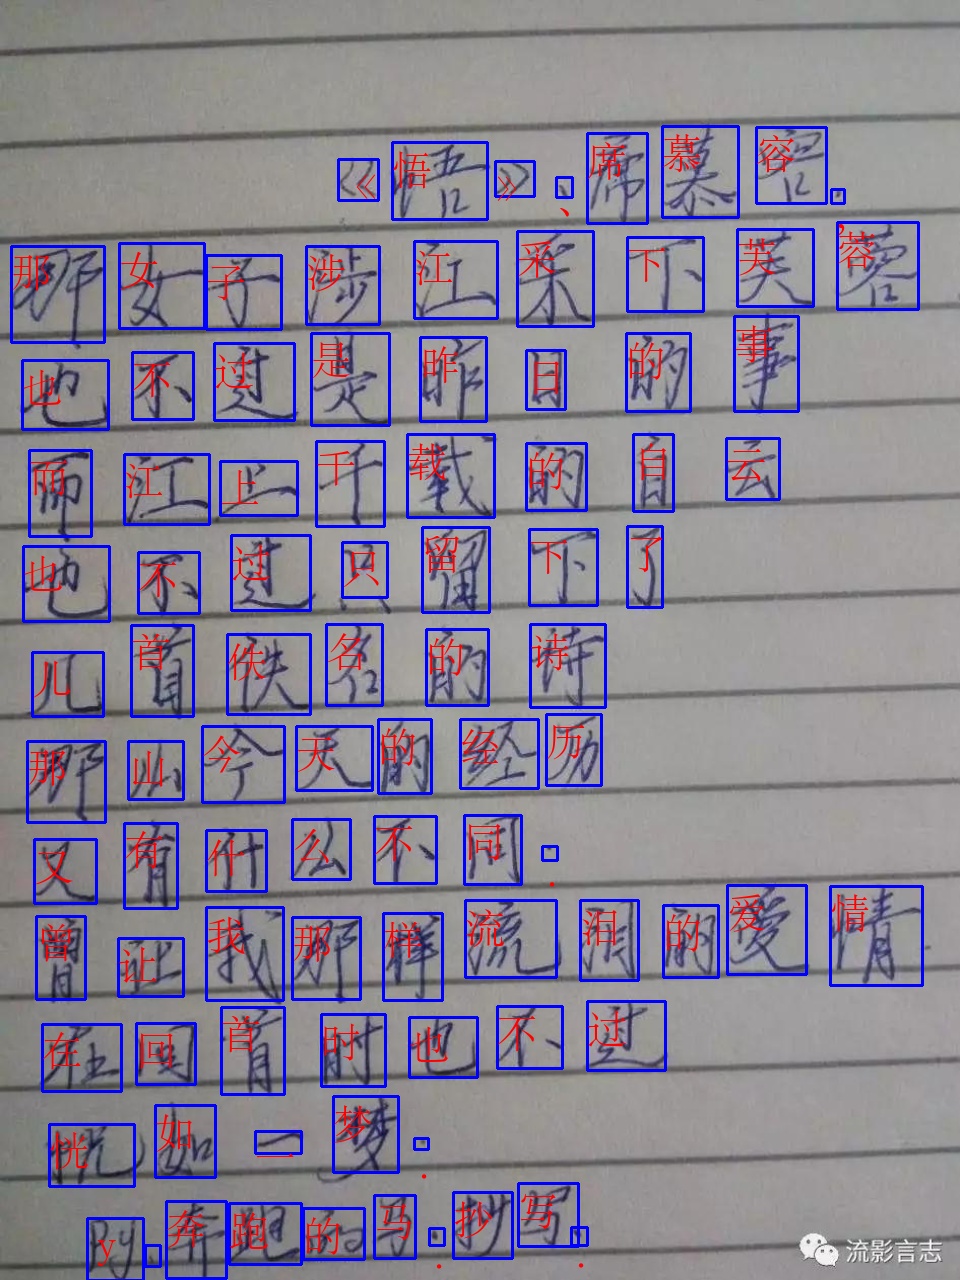 《悟》、席慕容.
那女子涉江采下芙蓉
也不过是昨日的事
而江上千载的白云
也不过只留下了
几首佚名的诗
那山今天的经历
又有什么不同.
曾让我那样流泪的爱情
在回首时也不过
恍如一梦.
By.奔跑的马.抄写.
流影言志